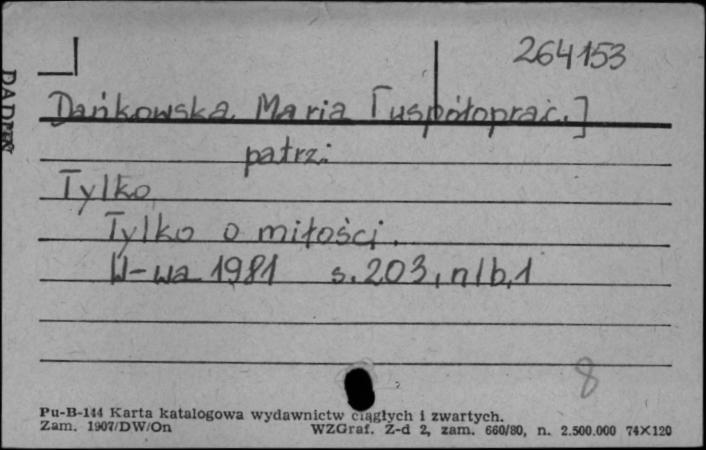 264153
Dańkowska Maria [współoprac.]
patrz:
Tylko
Tylko o miłości.
W-wa 1981 s. 203, nlb, 1
8
Pu-B-144 Karta katalogowa wydawnictw ciągłych i zwartych.
Zam. 1907/DW/On WZGraf. Z-d 2, zam. 660/80, n. 2.500.000 74×120